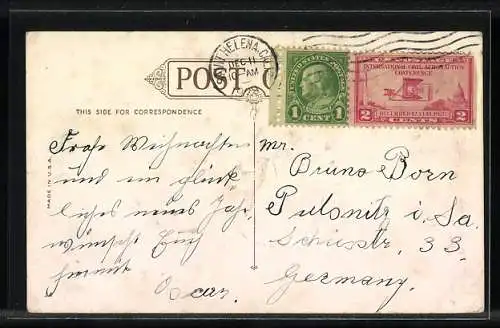 ST. HELENA, CAL.
DEC 11
10 AM
POST C
UNITED STATES POSTAGE
1 CENT 1
U.S. POSTAGE
INTERNATIONAL CIVIL AERONAUTICS
CONFERENCE
DECEMBER 12.13.14.1928
2 CENTS 2
THIS SIDE FOR CORRESPONDENCE
MADE IN U.S.A.
Frohe Weihnachten
und ein glück-
liches neues Jahr
wünscht Euch
hiermit
Oscar.
Mr.
Bruno Born
Pulsnitz i. Sa.
Schiesstr. 33.
Germany.